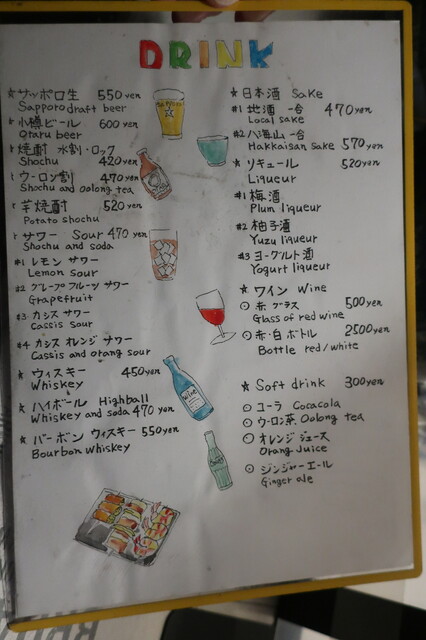 DRINK
☆サッポロ生 550yen
Sapporo draft beer
小樽ビール 600yen
Otaru beer
焼酎 水割・ロック
Shochu 420yen
ウーロン割 470yen
Shochu and oolong tea
芋焼酎 520yen
Potato shochu
サワー Sour 470yen
Shochu and soda
#1 レモン サワー
Lemon sour
#2 グレープフルーツ サワー
Grapefruit
#3 カシス サワー
Cassis sour
#4 カシス オレンジ サワー
Cassis and otang sour
☆ウィスキー 450yen
Whiskey
☆ハイボール Highball
Whiskey and soda 470yen
☆バーボン ウィスキー 550yen
Bourbon whiskey
☆日本酒 Sake
#1 地酒 一合 470yen
Local sake
#2 八海山 一合
Hakkaisan sake 570yen
☆リキュール 520yen
Liqueur
#1 梅酒
Plum liqueur
#2 柚子酒
Yuzu liqueur
#3 ヨーグルト酒
Yogurt liqueur
☆ワイン Wine
○赤 グラス 500yen
Glass of red wine
○赤・白 ボトル 2500yen
Bottle red/white
☆Soft drink 300yen
○コーラ Cocacola
○ウーロン茶 Oolong tea
○オレンジ ジュース
Orang Juice
○ジンジャーエール
Ginger ale